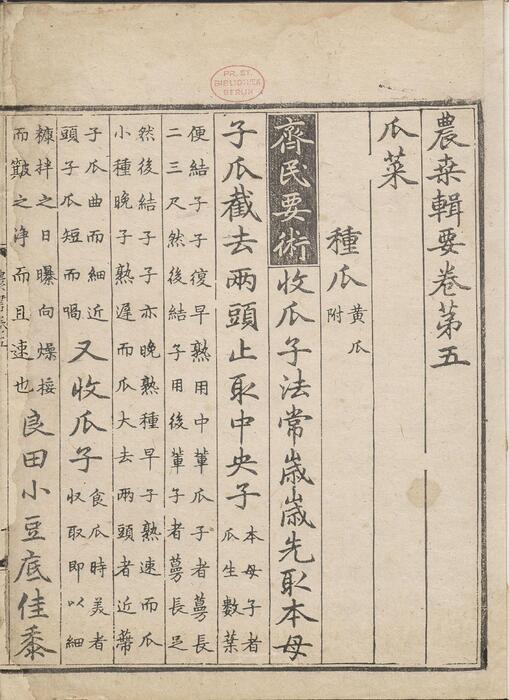 PR. ST.
BIBLIOTHEK
BERLIN
農桒輯要卷第五
瓜菜
種瓜
黃瓜
附
齊民要術收瓜子法常歲歲先取本母
子瓜截去兩頭止取中央子
本母子者
瓜生數葉
便結子子復早熟用中輩瓜子者蔓長
二三尺然後結子用後輩子者蔓長足
然後結子子亦晚熟種早子熟速而瓜
小種晚子熟遲而瓜大去兩頭者近蔕
子瓜曲而細近
頭子瓜短而喎
又收瓜子
食瓜時美者
收取即以細
糠拌之日曝向燥挼
而簸之淨而且速也
良田小豆底佳黍